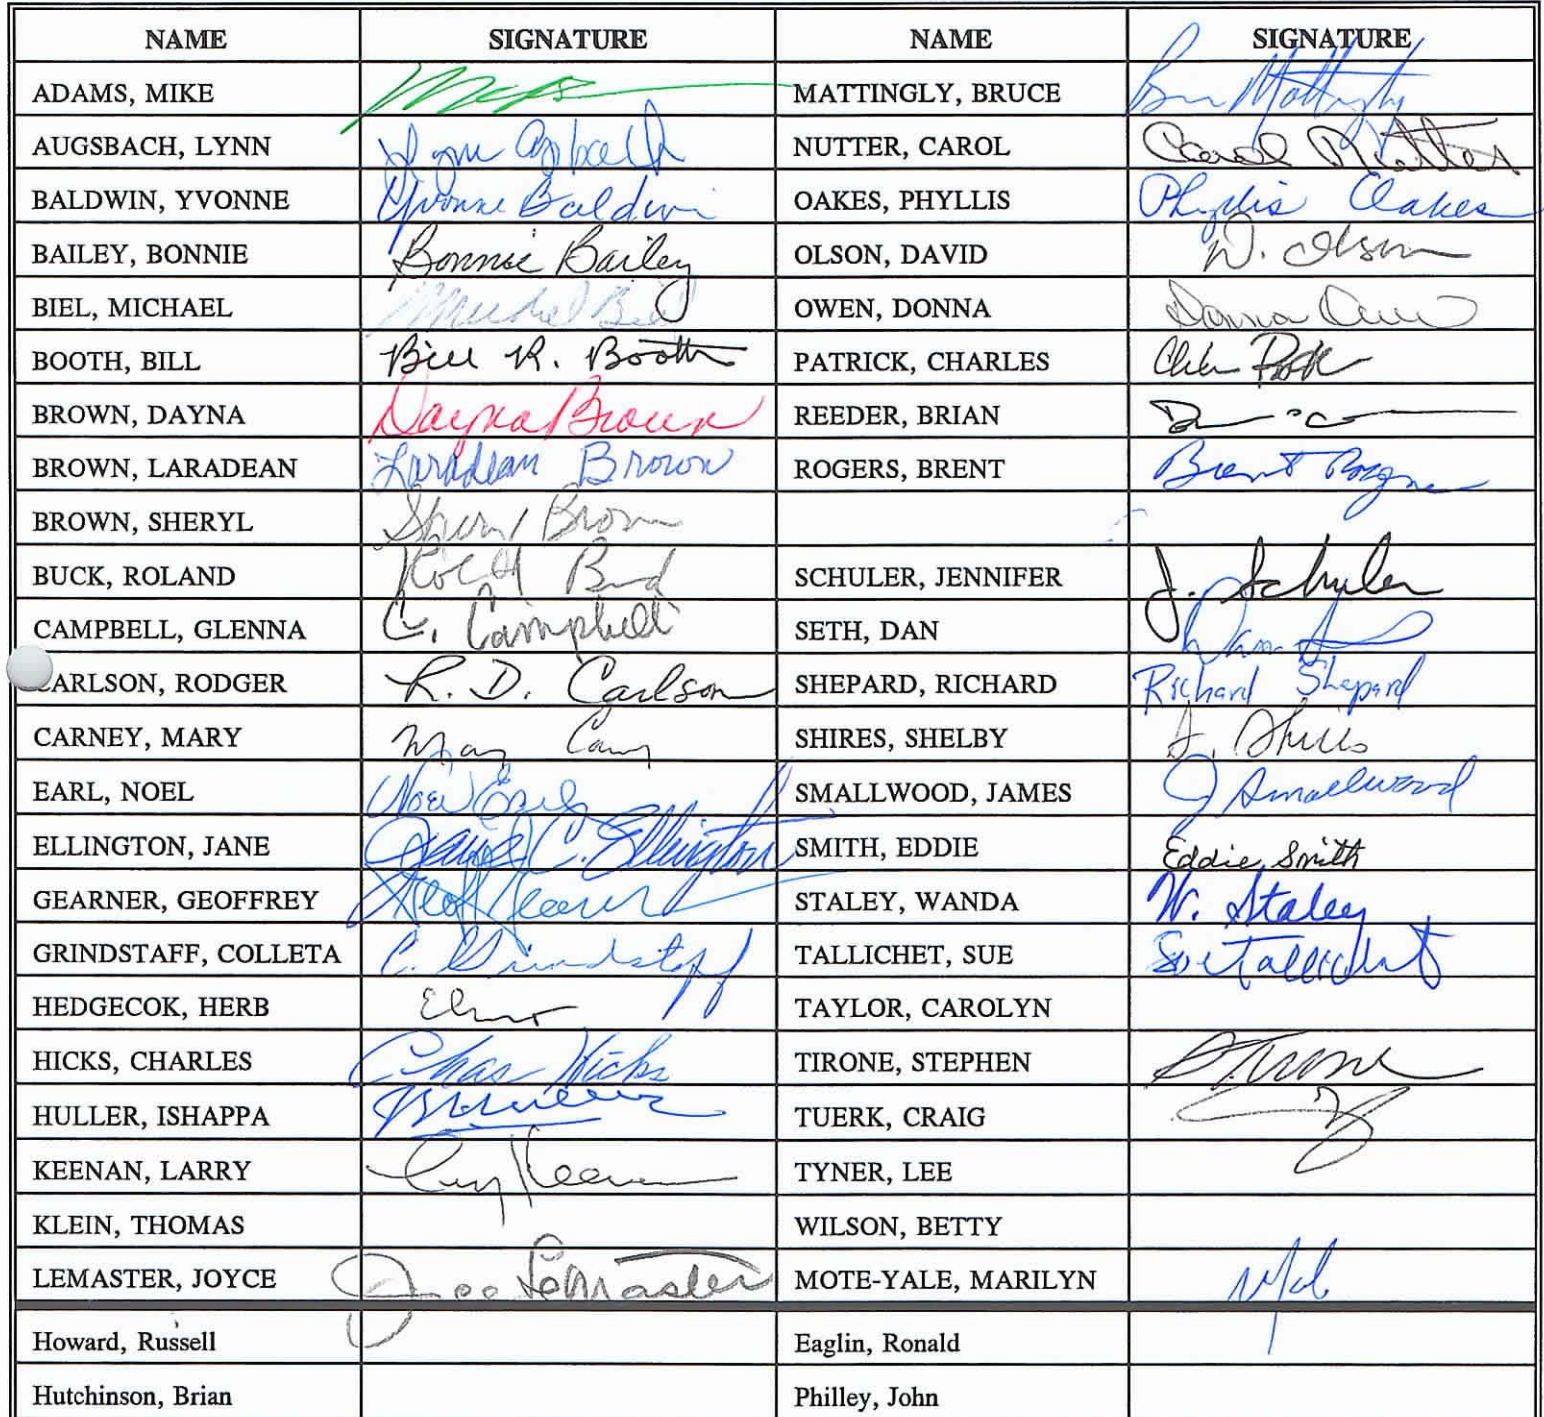 NAME SIGNATURE NAME SIGNATURE
ADAMS, MIKE MATTINGLY, BRUCE Bruce Mattingly
AUGSBACH, LYNN NUTTER, CAROL Carol Nutter
BALDWIN, YVONNE Yvonne Baldwin OAKES, PHYLLIS Phyllis Oakes
BAILEY, BONNIE Bonnie Bailey OLSON, DAVID D. Olson
BIEL, MICHAEL Michael Biel OWEN, DONNA Donna Owen
BOOTH, BILL Bill R. Booth PATRICK, CHARLES
BROWN, DAYNA Dayna Brown REEDER, BRIAN
BROWN, LARADEAN Laradean Brown ROGERS, BRENT Brent Rogers
BROWN, SHERYL Sheryl Brown
BUCK, ROLAND SCHULER, JENNIFER J. Schuler
CAMPBELL, GLENNA G. Campbell SETH, DAN Dan
CARLSON, RODGER R. D. Carlson SHEPARD, RICHARD Richard Shepard
CARNEY, MARY Mary Carney SHIRES, SHELBY S. Shires
EARL, NOEL Noel Earl SMALLWOOD, JAMES J Smallwood
ELLINGTON, JANE Jane C. Ellington SMITH, EDDIE Eddie Smith
GEARNER, GEOFFREY Geoff Gearner STALEY, WANDA W. Staley
GRINDSTAFF, COLLETA C. Grindstaff TALLICHET, SUE Sue Tallichet
HEDGECOK, HERB TAYLOR, CAROLYN
HICKS, CHARLES Chas Hicks TIRONE, STEPHEN STirone
HULLER, ISHAPPA TUERK, CRAIG
KEENAN, LARRY Larry Keenan TYNER, LEE
KLEIN, THOMAS WILSON, BETTY
LEMASTER, JOYCE Joyce LeMaster MOTE-YALE, MARILYN
Howard, Russell Eaglin, Ronald
Hutchinson, Brian Philley, John